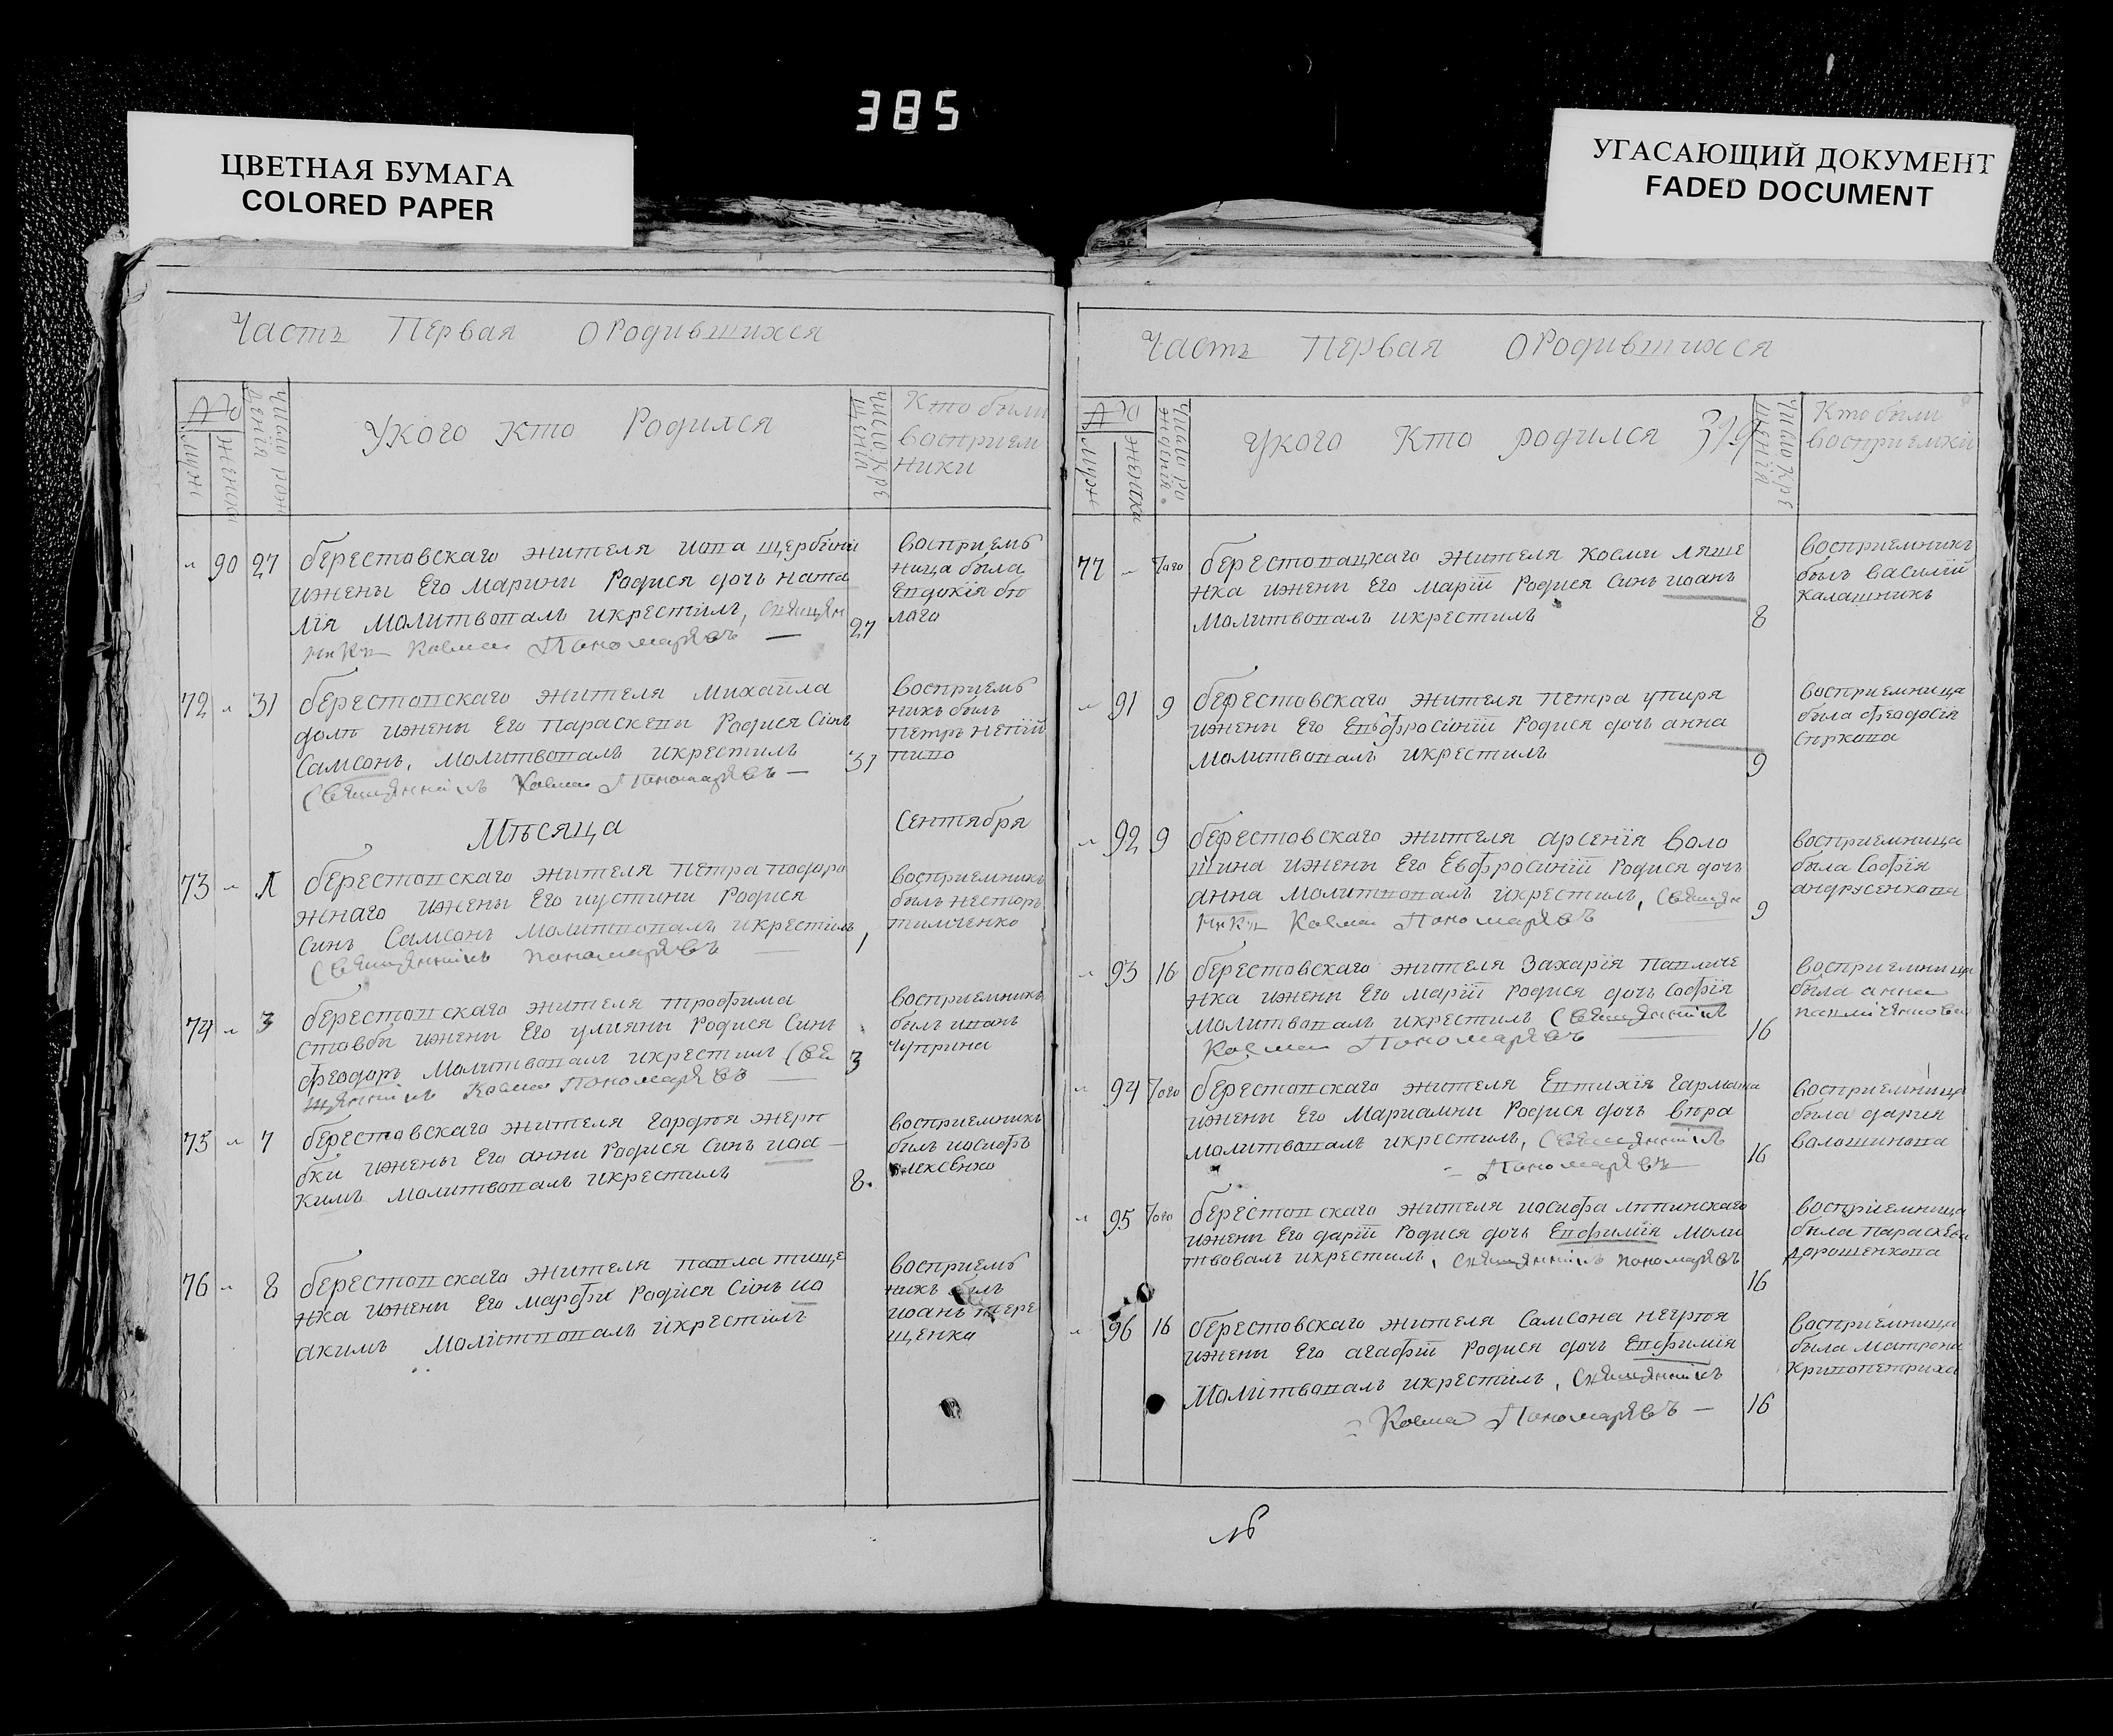 385
ЦВЕТНАЯ БУМАГА
COLORED PAPER
УГАСАЮЩИЙ ДОКУМЕНТ
FADED DOCUMENT
Часть Первая ОРодившихся
№
мужи
женски
Число рож
денія
Укого Кто Родился
Число кре
щенія
Кто были
восприем
ники
90 27 берестовскаго жителя иова щербини
ижены Его марини Родися дочь ната
лія молитвовалъ икрестилъ, священ
никъ Косма Пономаревъ — 27
восприемъ
ница была
Евдокія бѣ
лаго
72 31 берестовскаго жителя михаила
долп ижены Его параскевы Родися Сінъ
Самсонъ, молитвовалъ икрестилъ 31
Священникъ Косма Пономаревъ —
восприемъ
никъ былъ
петръ непій
пиво
Мѣсяца Сентября
73 1 берестовскаго жителя петра подоро
жнаго ижены Его иустини Родися
синъ Самсонъ молитвовалъ икрестилъ 1
Священникъ пономаревъ —
восприемникъ
былъ несторъ
тимченко
74 3 берестовскаго жителя трофима
стовби ижены Его улияны Родися Синъ
феодоръ молитвовалъ икрестилъ Све 3
щенникъ Косма Пономаревъ —
восприемникъ
былъ иванъ
чуприна
75 7 берестовскаго жителя гордѣя жерн
бки ижены Его анны Родися Синъ иоа
кимъ молитвовалъ икрестилъ 8.
восприемникъ
былъ иосифъ
алексенко
76 8 берестовскаго жителя павла тище
нка ижены Его марфы Родися Сінъ ио
акимъ молитвовалъ икрестилъ
восприемъ
никъ былъ
иоанъ тере
щенко
Часть Первая ОРодившихся
№
мужи
женска
Число ро
жденія
укого Кто родился 319
Число кре
щенія
Кто были
восприемнікі
77 Того берестовацкаго жителя космы ляше
нка ижены Его маріи Родися Синъ иоанъ
молитвовалъ икрестилъ 8
восприемникъ
былъ василій
калашникъ
91 9 берестовскаго жителя петра упиря
ижены Его Евфросиніи Родися дочь анна
молитвовалъ икрестилъ 9
восприемница
была феодосія
92 9 берестовскаго жителя арсенія воло
шина ижены Его Евфросиніи Родися дочь
анна молитвовалъ икрестилъ, Священ
никъ Косма Пономаревъ 9
восприемница
была Софія
андрусенкова
93 16 берестовскаго жителя Захарія павличе
нка ижены Его маріи Родися дочь Софія
молитвовалъ икрестилъ Священникъ
Косма Пономаревъ — 16
восприемница
была анна
94 Того берестовскаго жителя Евтихія гармаша
ижены Его Мариамны Родися дочь вѣра
молитвовалъ икрестилъ, Священникъ
Пономаревъ — 16
восприемница
была дария
волошинова
95 Того берестовскаго жителя иосифа литинскаго
ижены Его даріи Родися дочь Евфимія моли
твовалъ икрестилъ, Священникъ пономаревъ
16
восприемница
была параскева
дорошенкова
96 16 берестовскаго жителя Самсона
ижены Его агафіи Родися дочь Евфимія
Молитвовалъ икрестилъ, Священникъ
Косма Пономаревъ — 16
восприемница
была матрона
кривопетриха